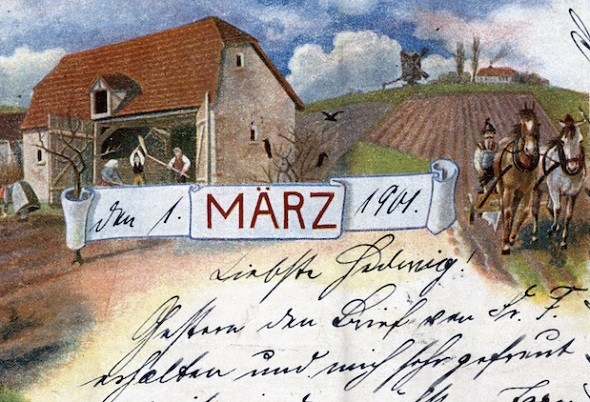 den 1. MÄRZ 1901.
Liebste Hedwig!
Gestern den Brief von Fr. F.
erhalten und mich sehr gefreut